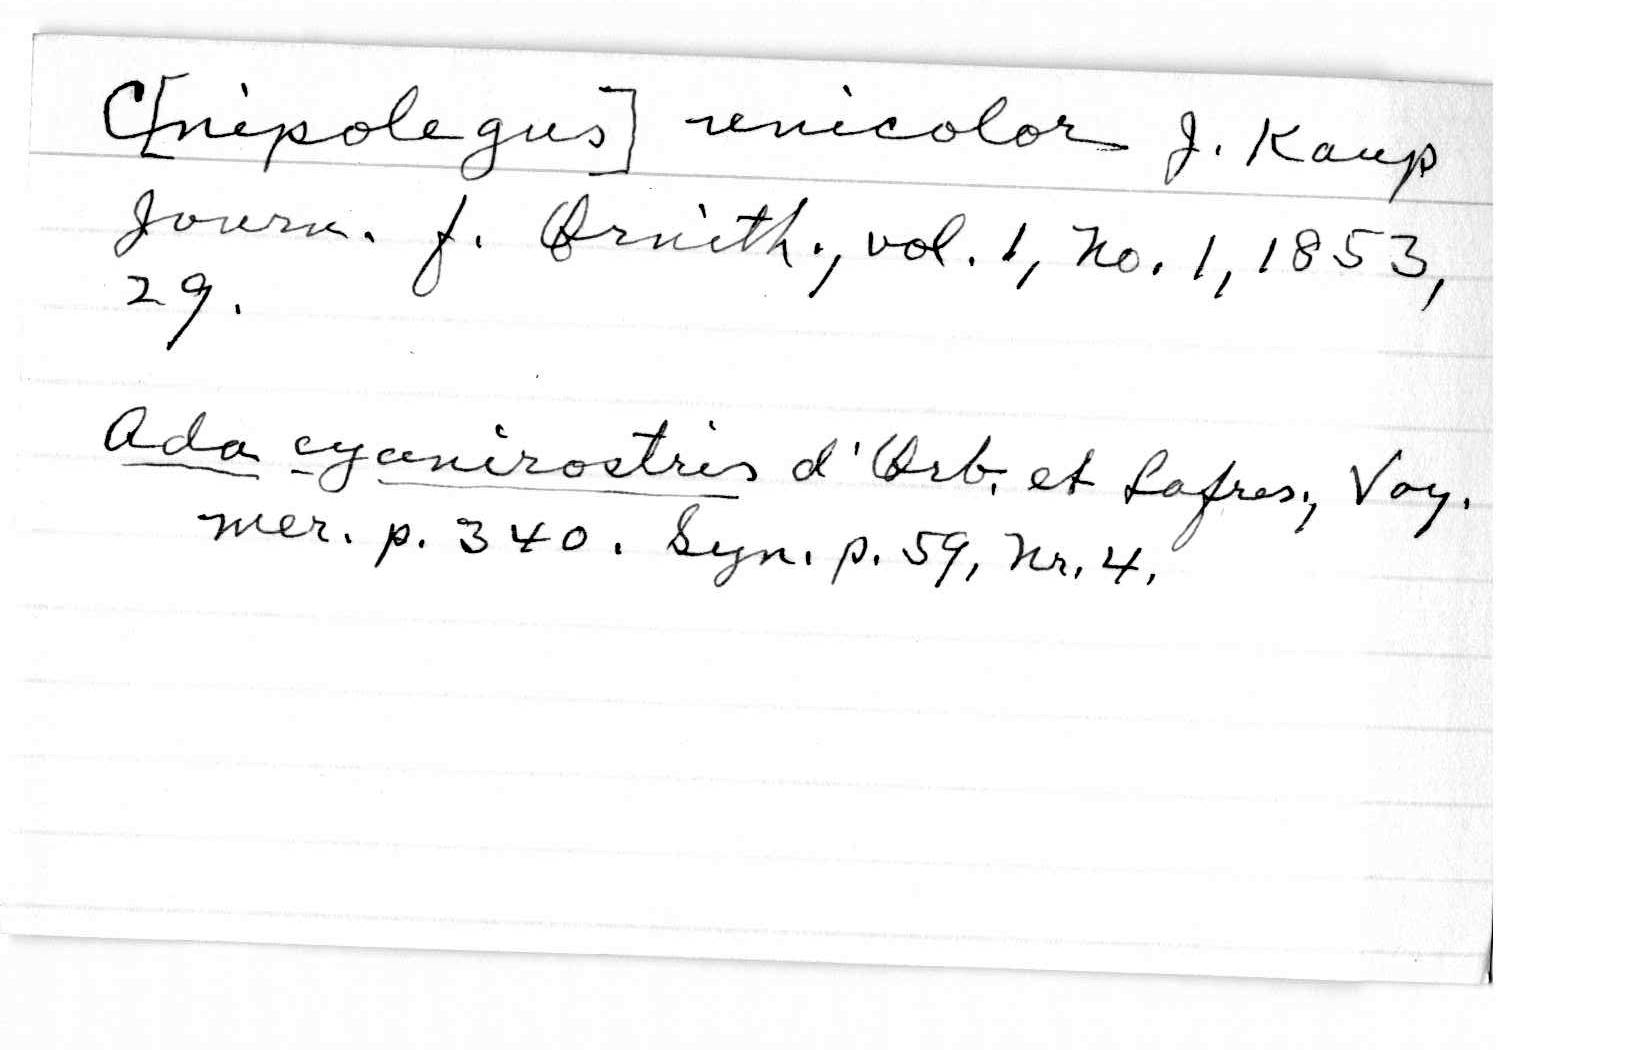 C[nipolegus] unicolor J. Kaup
Journ. f. Ornith., vol. 1, No. 1, 1853,
29.
Ada cyanirostris d'Orb. et Lafres., Voy.
mer. p. 340. Syn. p. 59, Nr. 4.